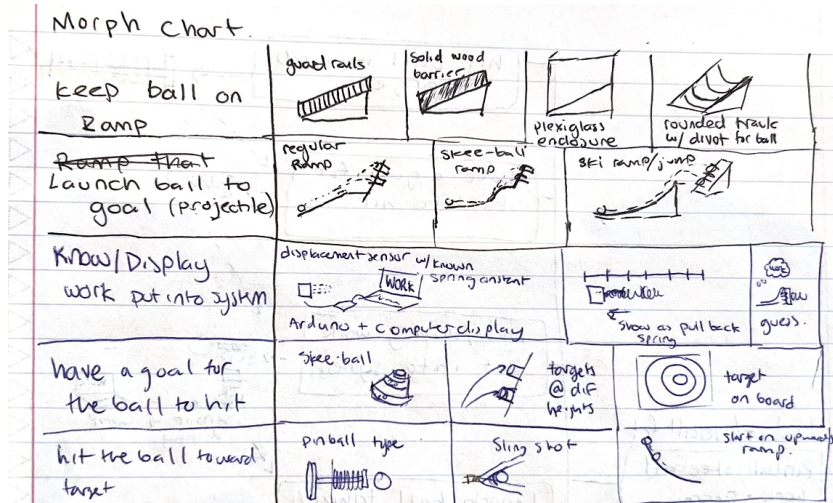 Morph Chart.
Keep ball on
Ramp
guard rails
Solid wood
barrier
plexiglass
enclosure
rounded track
w/ divot for ball
Ramp that
Launch ball to
goal (projectile)
regular
Ramp
Skee-ball
ramp
Ski ramp/jump
Know/Display
work put into system
displacement sensor w/known
spring constant
WORK
Arduino + Computer display
Show as pull back
spring
guess.
have a goal for
the ball to hit
Skee-ball
targets
@ dif
heights
target
on board
hit the ball toward
target
pinball type
Sling shot
start on upwards
ramp.